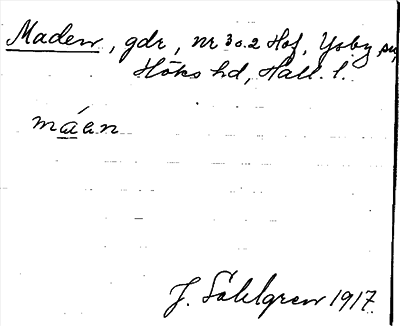 Maden, gdr, nr 3 o. 2 Hof, Ysby sn,
Höks hd, Hall. l.
máan
J. Sahlgren 1917.